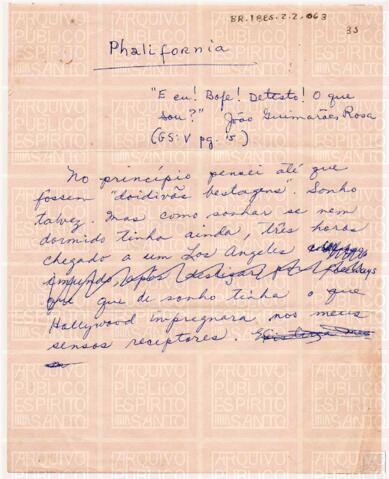 BR.IBES.2.2.063
35
Phalifornia
"E eu! Bofe! Detesto! O que
sou?" João Guimarães Rosa
(GS:V pg. 15)
No princípio pensei até que
fossem "doidivãs bestagens". Sonho
talvez. Mas como sonhar se nem
dormido tinha ainda, três horas
chegado a um Los Angeles
que que de sonho tinha o que
Hollywood impregnara nos meus
sensos receptores.
ARQUIVO
PÚBLICO
ESPÍRITO
SANTO